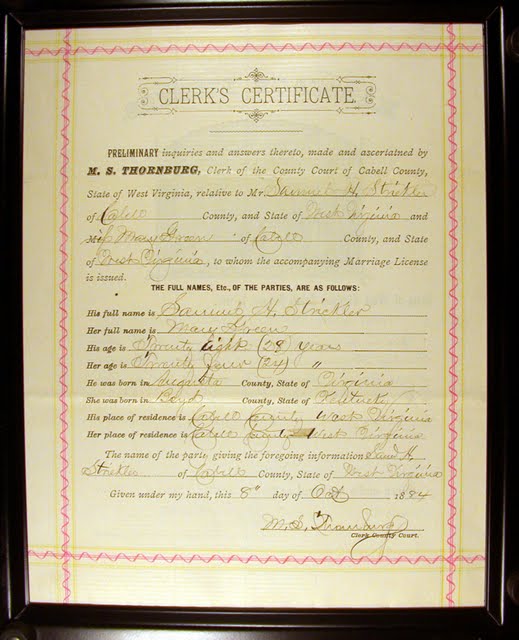 CLERK'S CERTIFICATE.
PRELIMINARY inquiries and answers thereto, made and ascertained by
M. S. THORNBURG, Clerk of the County Court of Cabell County,
State of West Virginia, relative to Mr. Samuel H. Strickler
of Cabell County, and State of West Virginia and
Miss Mary Green of Cabell County, and State
of West Virginia, to whom the accompanying Marriage License
is issued.
THE FULL NAMES, Etc., OF THE PARTIES, ARE AS FOLLOWS:
His full name is Samuel H. Strickler
Her full name is Mary Green
His age is Twenty Eight (28) years
Her age is Twenty Four (24) "
He was born in Augusta County, State of Virginia
She was born in Boyd County, State of Kentucky
His place of residence is Cabell County West Virginia
Her place of residence is Cabell County West Virginia
The name of the party giving the foregoing information Saml H
Strickler of Cabell County, State of West Virginia
Given under my hand, this 8" day of Oct 1884
M. S. Thornburg
Clerk County Court.